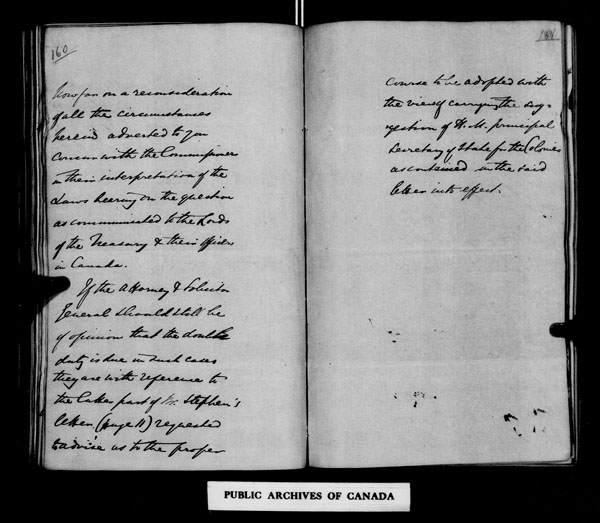 160
how far on a reconsideration
of all the circumstances
herein adverted to you
concur with the Commissioners
in their interpretation of the
Laws bearing on the question
as communicated to the Lords
of the Treasury & their Officers
in Canada.
If the Attorney & Solicitor
General should still be
of opinion that the double
duty is due in such cases
they are with reference to
the latter part of Mr. Stephen's
letter (page 11) requested
to advise us to the proper
161
course to be adopted with
the view of carrying the sug-
gestion of H. M. principal
Secretary of State for the Colonies
as contained in the said
letter into effect.
PUBLIC ARCHIVES OF CANADA